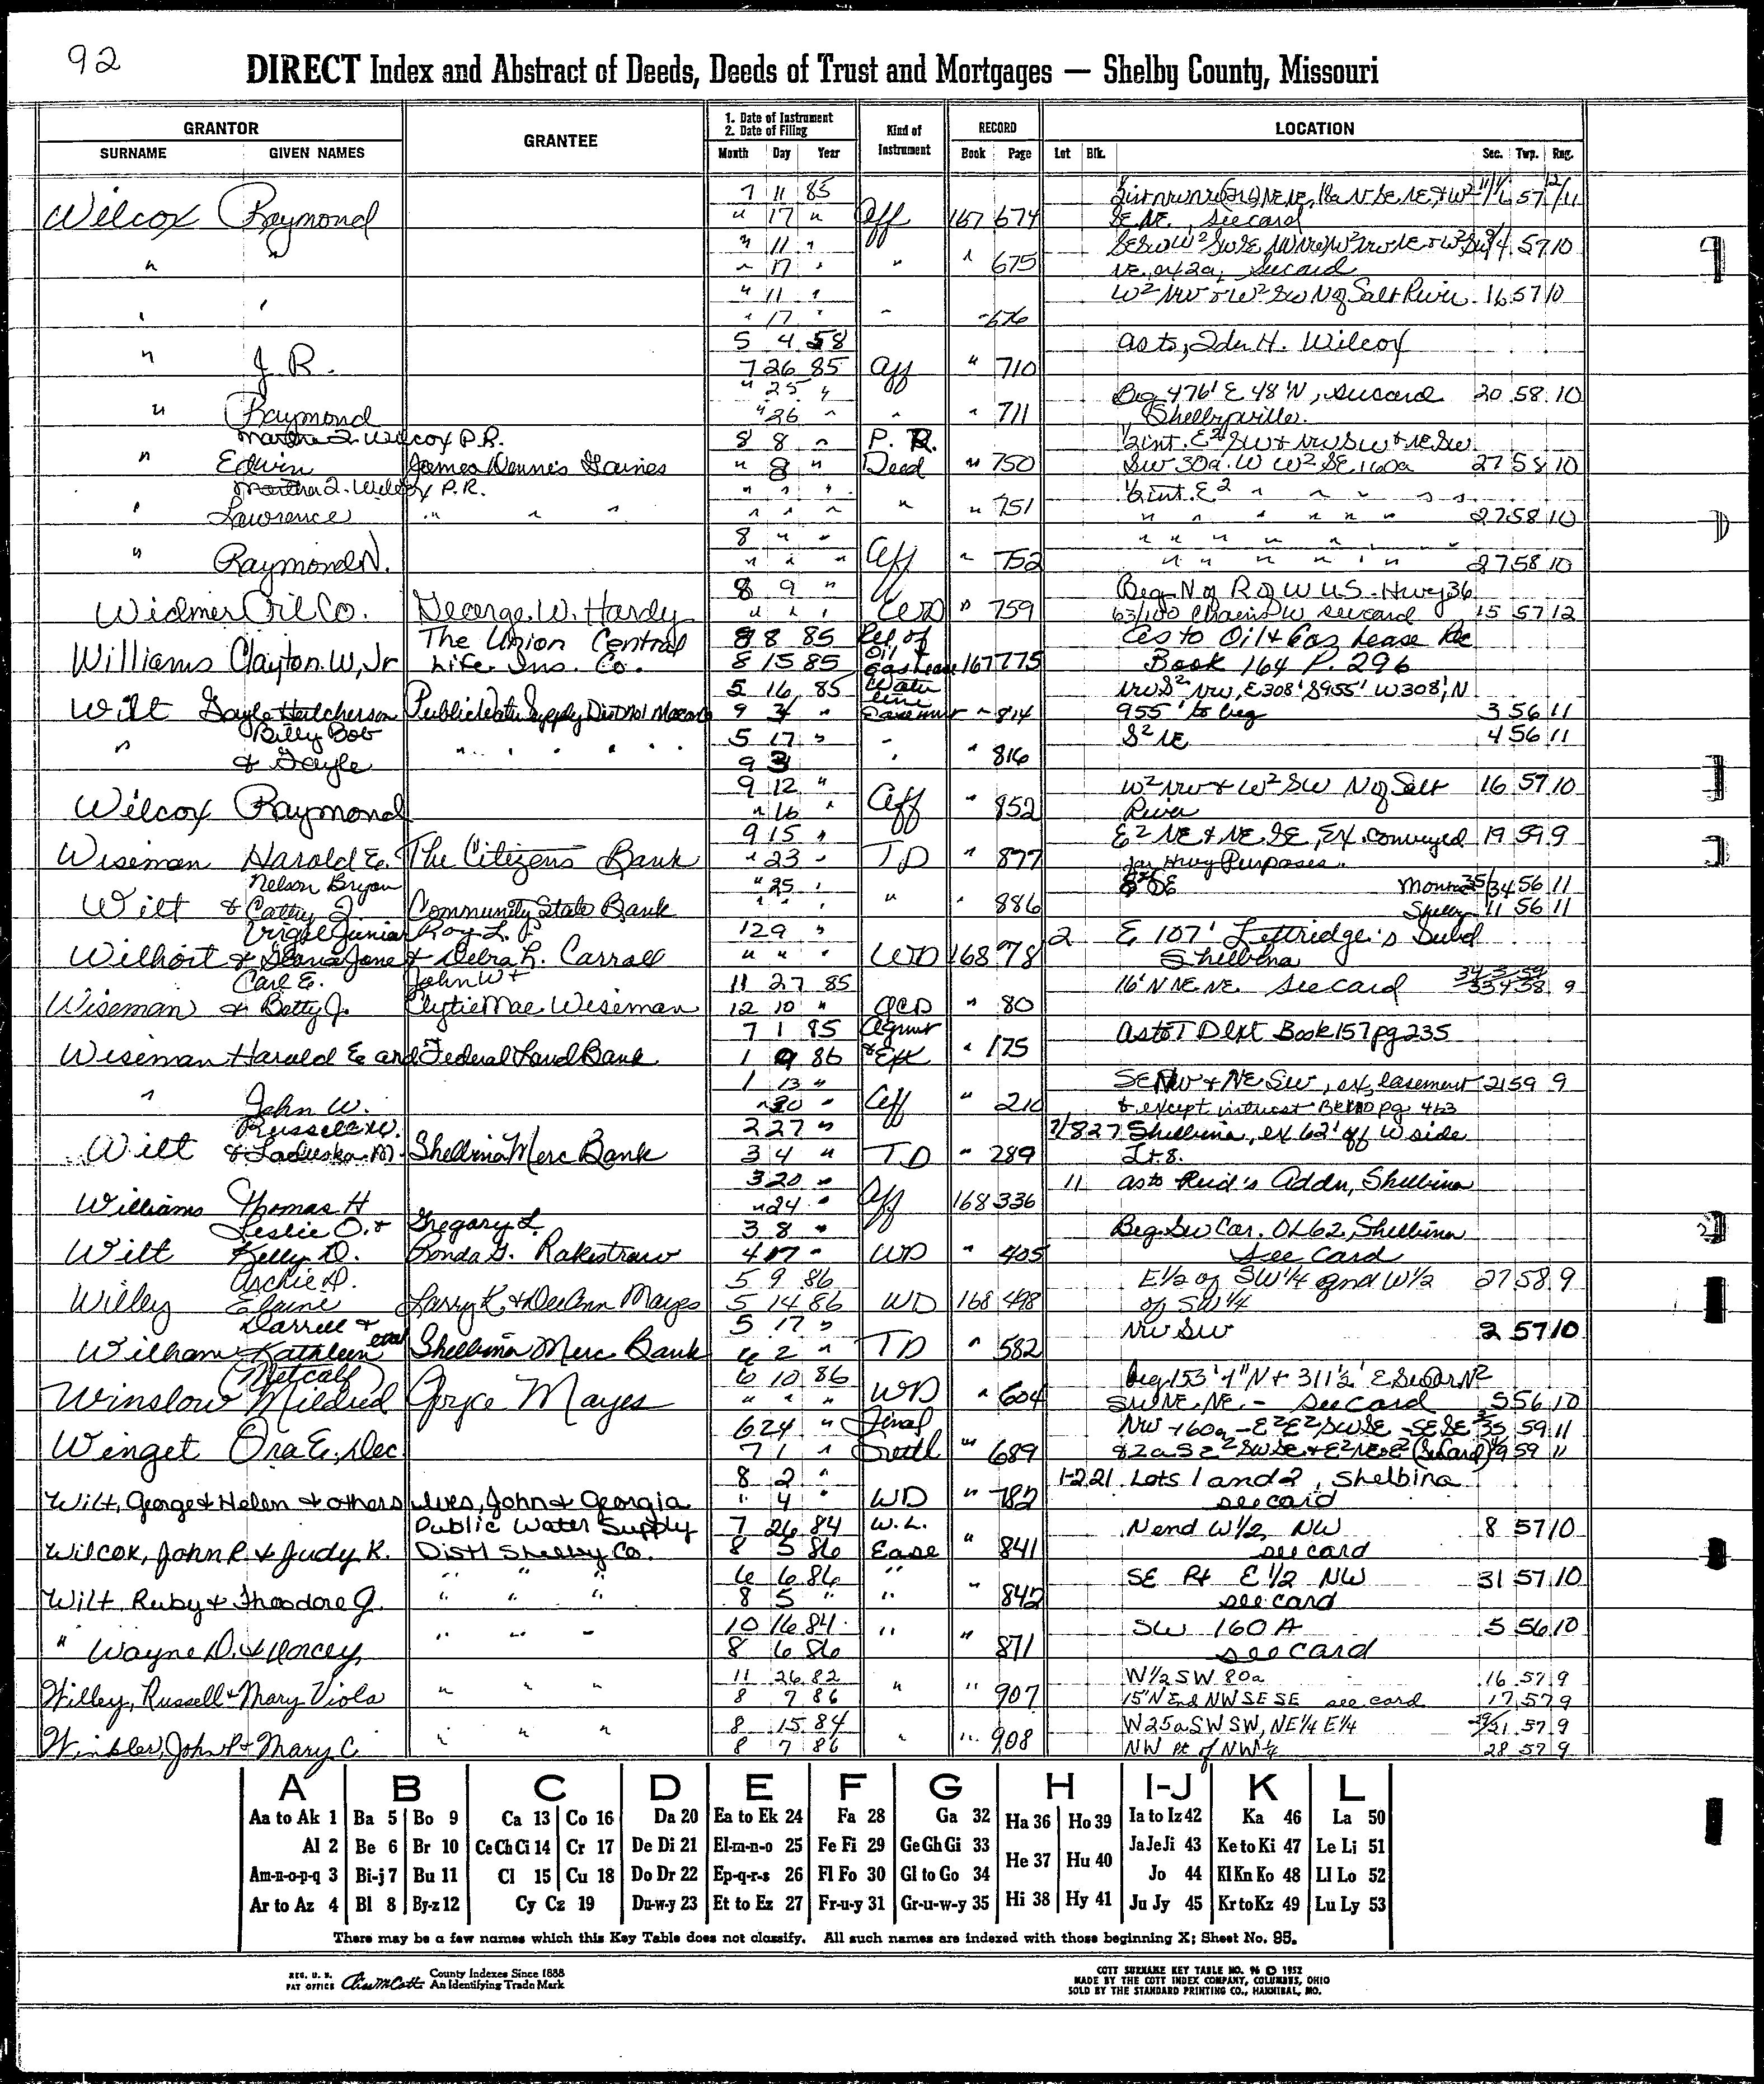 92
DIRECT Index and Abstract of Deeds, Deeds of Trust and Mortgages — Shelby County, Missouri
GRANTOR
SURNAME GIVEN NAMES
GRANTEE
1. Date of Instrument
2. Date of Filing
Month Day Year
Kind of Instrument
RECORD
Book Page
LOCATION
Lot Blk. Sec. Twp. Rng.
7 11 85
Wilcox Raymond " 17 " Aff 167 674 SE NE, see card
" 11 "
" " " 17 " " " 675 see card
" 11 " W² NW & W² SW N of Salt River 16 57 10
" " " 17 " " " 676
5 4 58 as to, Ida H. Wilcox
" J. R. 7 26 85 Aff " 710
" 25 " Beg 476' E 48' N, see card 20 58 10
" Raymond " 26 " " " 711 Shelbyville.
Martha I. Wilcox P.R. 8 8 " P. R. ½ int. E² SW & NW SW & NE SW
" Edwin James Dennis Gaines " 8 " Deed " 750 SW 30a. W W² SE 160a 27 58 10
Martha I. Wilcox P.R. " " " ½ int. E² " " " " "
" Lawrence " " " " " " " " 751 " " " " " " 27 58 10
8 " " " " " " " "
" Raymond N. " " " Aff " 752 " " " " " " 27 58 10
8 9 " Beg N of R O W US Hwy 36
Widmer Oil Co. George W. Hardy " " " WD " 759 63/100 Chains W see card 15 57 12
The Union Central 8 8 85 Rel of Oil & As to Oil & Gas Lease Rec
Williams Clayton W, Jr Life Ins. Co. 8 15 85 Gas Lease 167 775 Book 164 P. 296
5 16 85 Water line NW S² NW, E 308' S 955' W 308', N
Wilt Gayle Hutcherson Public Water Supply Dist No 1 Macon Co 9 3 " Easement " 814 955' to beg 3 56 11
" Billy Bob " " " " " 5 17 " " " 816 S² NE 4 56 11
& Gayle 9 3
9 12 " W² NW & W² SW N of Salt 16 57 10
Wilcox Raymond " 16 " Aff " 852 River
9 15 " E² NE & NE SE, Ex conveyed 19 59 9
Wiseman Harold E. The Citizens Bank " 23 " TD " 877 for Hwy Purposes.
Nelson Bryan " 25 " Monroe 35/34 56 11
Wilt & Cathy J. Community State Bank " " " " " 886 Shelby 11 56 11
Virgil Junior Roy L. Jr 12 9 " 2 E 107' Leftridge's Subd
Wilhoit & Gloria Jane & Debra L. Carroll " " " WD 168 78 Shelbina
Carl E. John W & 11 27 85 16' N NE NE see card 9
Wiseman & Betty J. Clytie Mae Wiseman 12 10 " QCD " 80
7 1 85 Agmt As to T D Ext Book 157 pg 235
Wiseman Harold E and Federal Land Bank 1 9 86 & Ext " 175
1 13 " SE NW & NE SW, ex, easement 21 59 9
" John W. " 20 " Aff " 210 & except interest Bk 110 pg 463
Russell W. 2 27 " 7/8 27 Shelbina, ex 62' off W side
Wilt & Laduska M. Shelbina Merc Bank 3 4 " TD " 289 Lt 8.
3 20 " 11 as to Reid's Addn, Shelbina
Williams Thomas H " 24 " Aff 168 336
Leslie O. & Gregory L. 3 8 " Beg. SW Cor. OL 62, Shelbina
Wilt Kelly D. Ronda G. Rakestraw 4 17 " WD " 405 see Card
Archie D. 5 9 86 E 1/2 of SW 1/4 and W 1/2 27 58 9
Willey Elaine Larry K. & DeeAnn Mayes 5 14 86 WD 168 498 of SW 1/4
Darrell & 5 17 " NW SW 2 57 10
Wilham Kathleen etal Shelbina Merc Bank 6 2 " TD " 582
(Metcalf) 6 10 86 Beg. 153' 4" N & 311 1/2' E SW Cor N²
Winslow Mildred Joyce Mayes " " " WD " 604 SW NE, NE - see card 5 56 10
6 24 " Final NW +60a - E² E² SW SE - SE SE 35 59 11
Winget Ora E., Dec. 7 1 " Settl " 689 (See Card) 59 11
8 2 " 1-2 21 Lots 1 and 2, Shelbina
Wilt, George & Helen & others Ives, John & Georgia " 4 " WD " 782 see card
Public Water Supply 7 26 84 W.L. N end W 1/2 NW 8 57 10
Wilcox, John R & Judy K. Dist 1 Shelby Co. 8 5 86 Ease " 841 see card
" " " 6 6 86 " SE Pt E 1/2 NW 31 57 10
Wilt, Ruby & Theodore G. " " " 8 5 " " " 842 see card
10 16 84 SW 160 A 5 56 10
" Wayne D. & Dorcey " " " 8 6 86 " " 871 see card
11 26 82 W 1/2 SW 80a 16 57 9
Willey, Russell & Mary Viola " " " 8 7 86 " " 907 15" N End NW SE SE see card 17 57 9
8 15 84 W 25a SW SW, NE 1/4 E 1/4 21 57 9
Winkler, John P & Mary C. " " " 8 7 86 " " 908 NW Pt of NW 1/4 28 57 9
A B C D E F G H I-J K L
Aa to Ak 1 Ba 5 Bo 9 Ca 13 Co 16 Da 20 Ea to Ek 24 Fa 28 Ga 32 Ha 36 Ho 39 Ia to Iz 42 Ka 46 La 50
Al 2 Be 6 Br 10 Ce Ch Ci 14 Cr 17 De Di 21 El-m-n-o 25 Fe Fi 29 Ge Gh Gi 33 He 37 Hu 40 Ja Je Ji 43 Ke to Ki 47 Le Li 51
Am-n-o-p-q 3 Bi-j 7 Bu 11 Cl 15 Cu 18 Do Dr 22 Ep-q-r-s 26 Fl Fo 30 Gl to Go 34 Jo 44 Kl Kn Ko 48 Ll Lo 52
Ar to Az 4 Bl 8 By-z 12 Cy Cz 19 Du-w-y 23 Et to Ez 27 Fr-u-y 31 Gr-u-w-y 35 Hi 38 Hy 41 Ju Jy 45 Kr to Kz 49 Lu Ly 53
There may be a few names which this Key Table does not classify. All such names are indexed with those beginning X; Sheet No. 95.
REG. U. S. PAT OFFICE County Indexes Since 1888
An Identifying Trade Mark
COTT SURNAME KEY TABLE NO. 96 © 1952
MADE BY THE COTT INDEX COMPANY, COLUMBUS, OHIO
SOLD BY THE STANDARD PRINTING CO., HANNIBAL, MO.